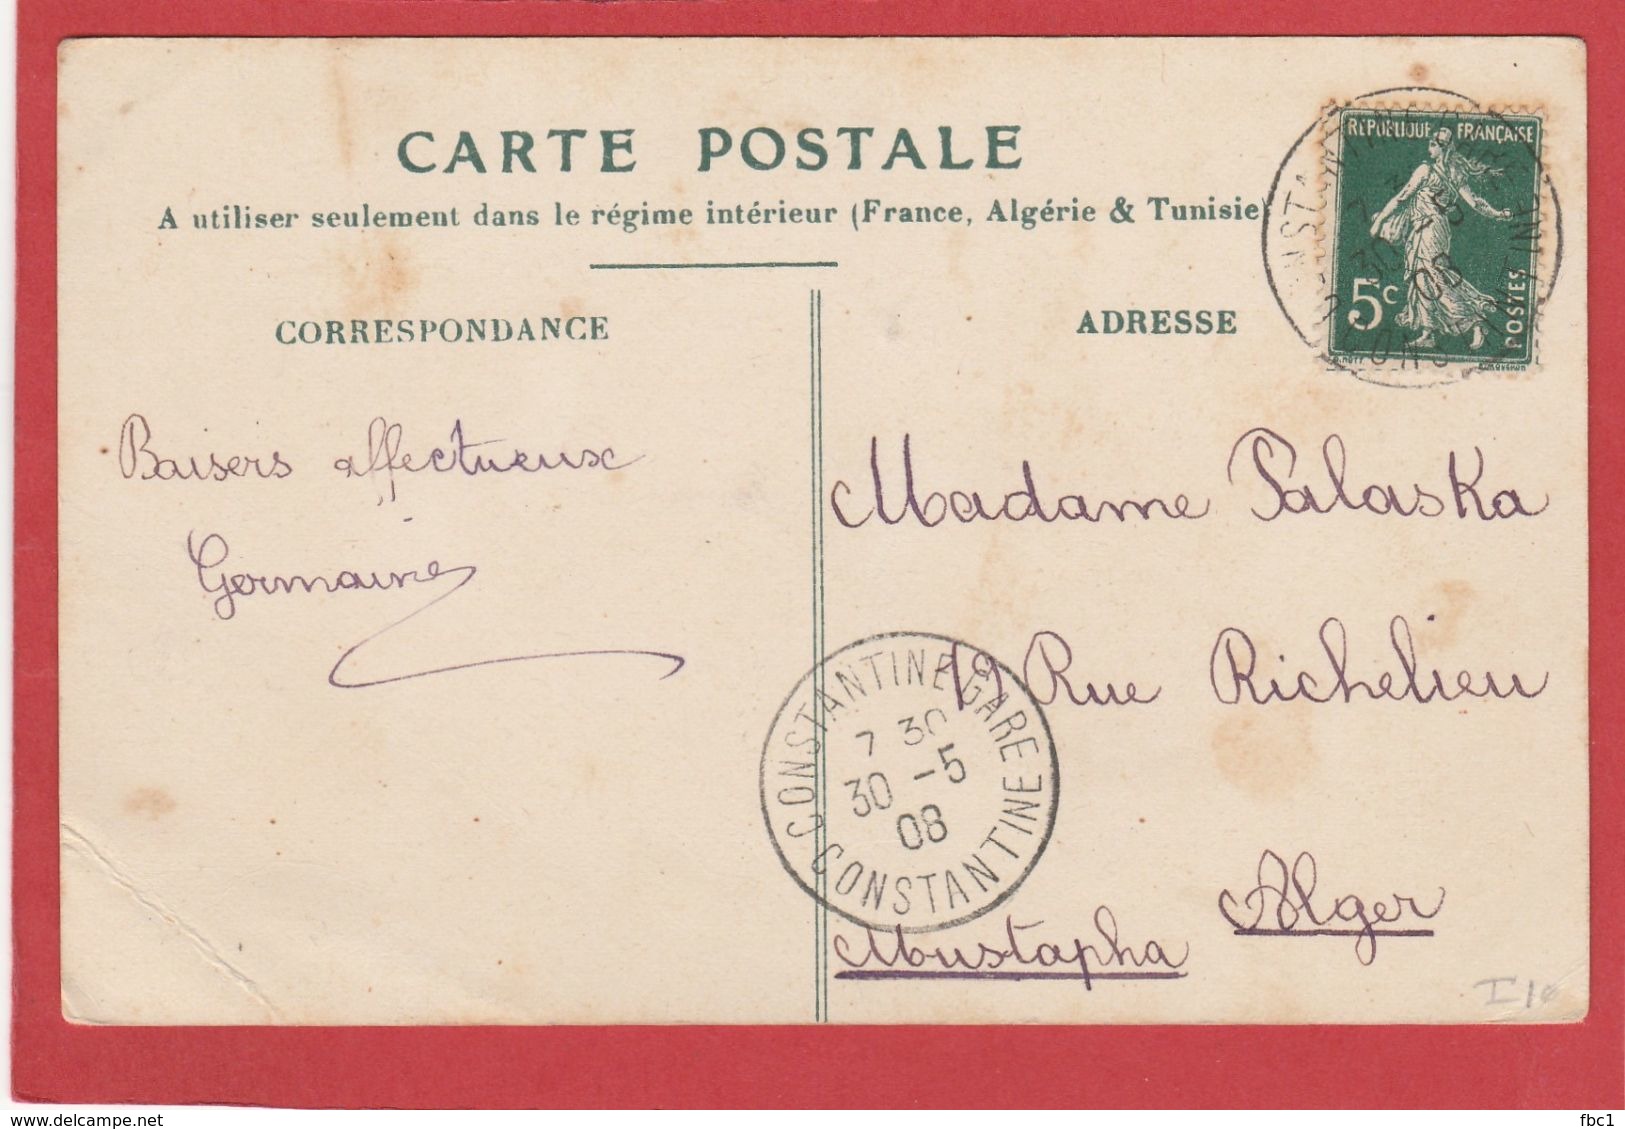 CARTE POSTALE
A utiliser seulement dans le régime intérieur (France, Algérie & Tunisie)
CORRESPONDANCE
ADRESSE
RÉPUBLIQUE FRANÇAISE
5c
POSTES
Baisers affectueux
Germaine
Madame Palaska
19 Rue Richelieu
Mustapha Alger
CONSTANTINE GARE
7 30
30 -5
08
CONSTANTINE
delcampe.net
fbc1